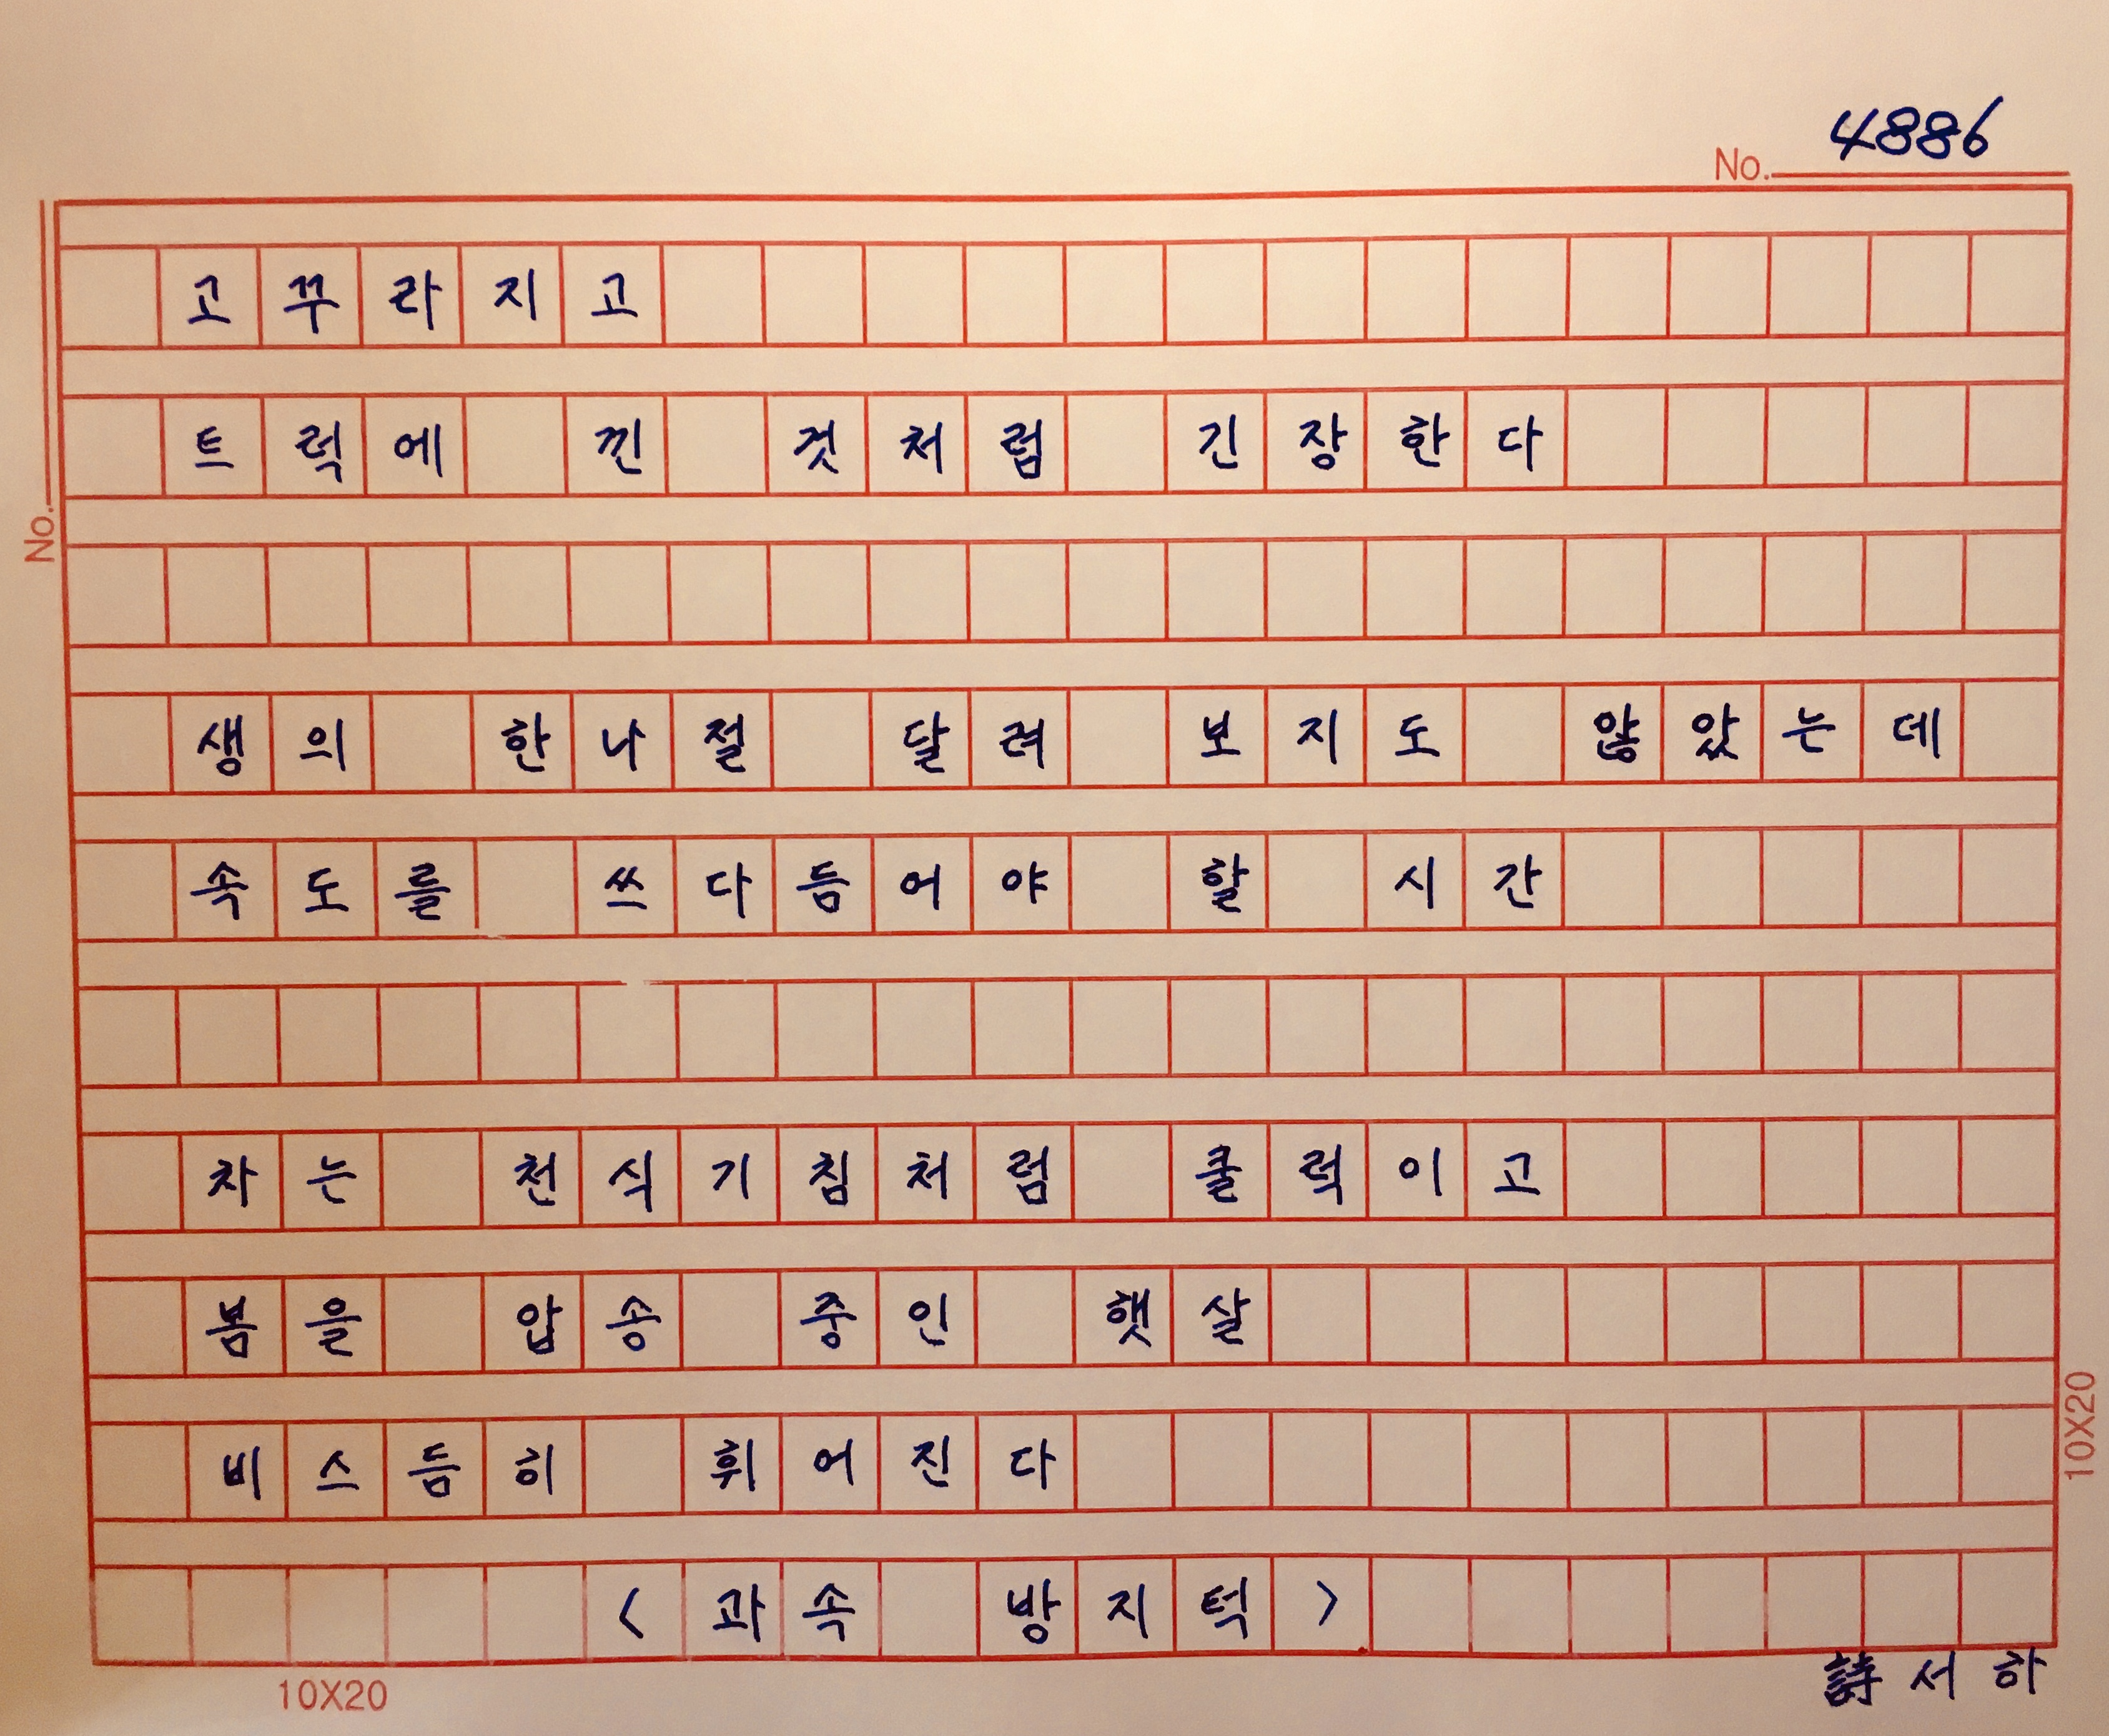 4886
No.
고꾸라지고
트럭에 낀 것처럼 긴장한다
No.
생의 한나절 달려 보지도 않았는데
속도를 쓰다듬어야 할 시간
차는 천식기침처럼 쿨럭이고
봄을 압송 중인 햇살
비스듬히 휘어진다
10X20
<과속 방지턱>
詩 서하
10X20